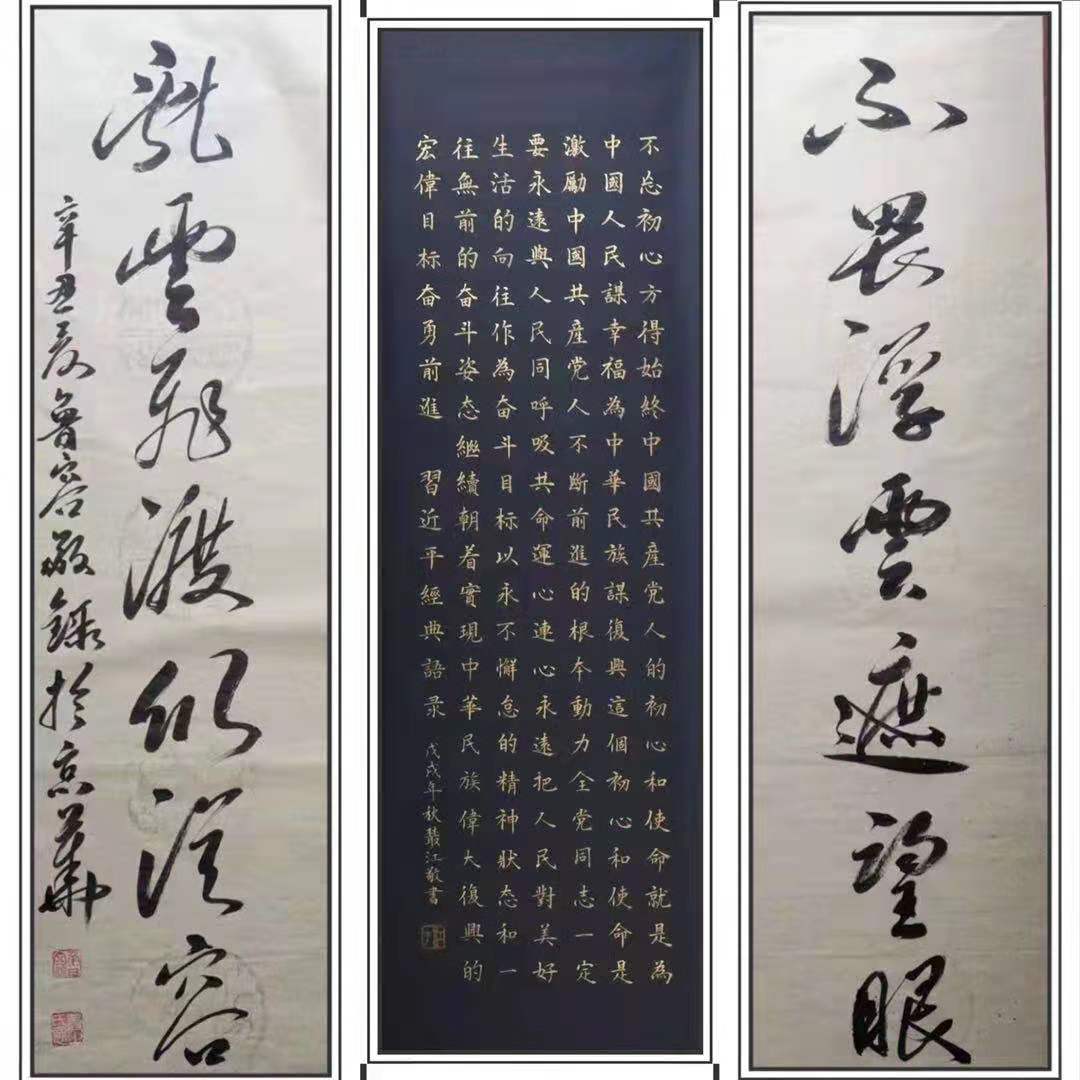 不畏浮雲遮望眼
不忘初心方得始終中國共産党人的初心和使命就是為
中國人民謀幸福為中華民族謀復興這個初心和使命是
激勵中國共産党人不斷前進的根本動力全党同志一定
要永遠與人民同呼吸共命運心連心永遠把人民對美好
生活的向往作為奋斗目标以永不懈怠的精神狀态和一
往無前的奋斗姿态繼續朝着實現中華民族偉大復興的
宏偉目标奋勇前進 習近平經典語录 戊戌年秋叢江敬書
亂雲飛渡仍從容
辛丑夏魯容敬錄於京華